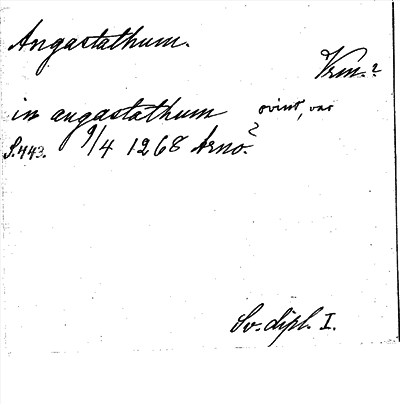 Angastathum.
Vrm.?
in angastathum ovisst, var?
S.443. 9/4 1268 Arno.
Sv. dipl. I.